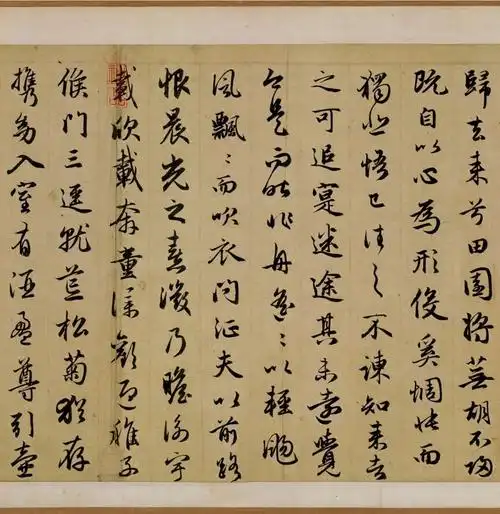 歸去来兮田園將蕪胡不歸
既自以心為形役奚惆悵而
獨悲悟已往之不諫知来者
之可追寔迷途其未遠覺
今是而昨非舟遙〻以輕颺
風飄〻而吹衣問征夫以前路
恨晨光之熹微乃瞻衡宇
載欣載奔童僕歡迎稚子
候門三逕就荒松菊猶存
携幼入室有酒盈尊引壺